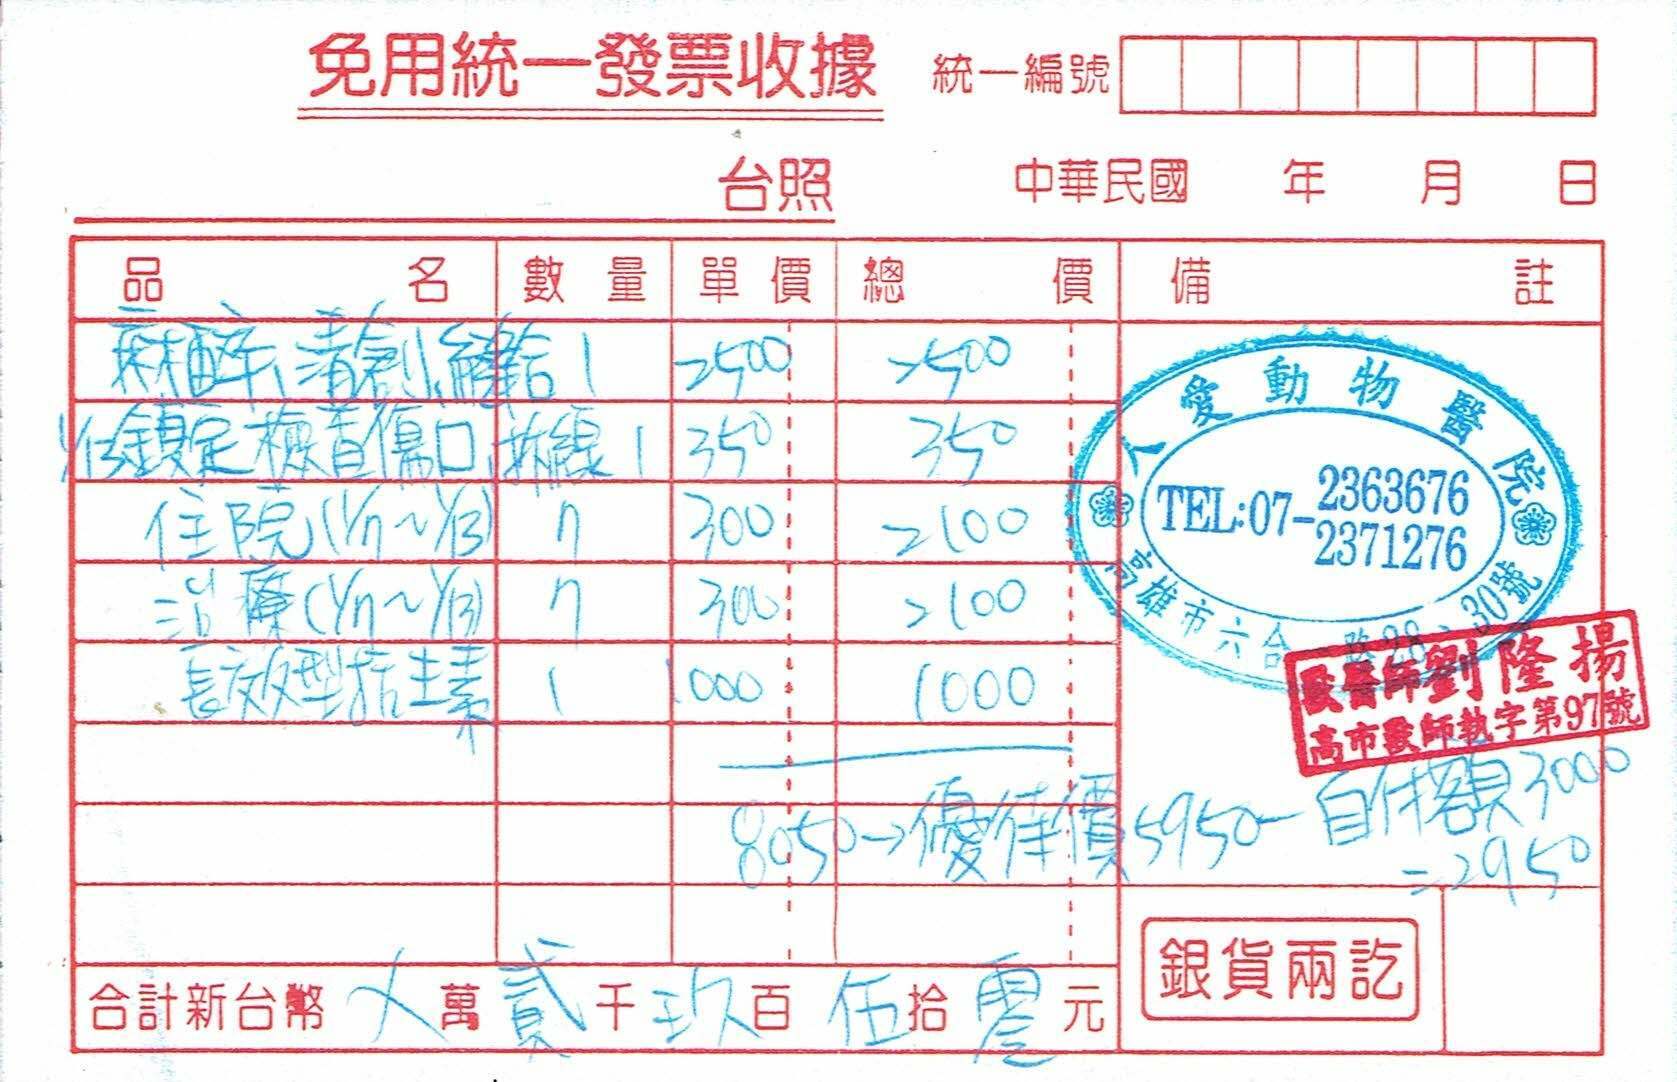 免用統一發票收據 統一編號
台照 中華民國 年 月 日
品名 數量 單價 總價 備註
麻醉、清創、縫合 1 2500 2500
1/13鎮定檢查傷口,拆線 1 350 350
住院(1/7~1/13) 7 300 2100
治療(1/7~1/13) 7 300 2100
長效型抗生素 1 1000 1000
人愛動物醫院
TEL:07-2363676
2371276
高雄市六合一路28、30號
獸醫師劉隆揚
高市獸師執字第97號
8050→優待價5950-自付額3000
=2950
合計新台幣 X 萬 貳 千 玖 百 伍 拾 零 元
銀貨兩訖